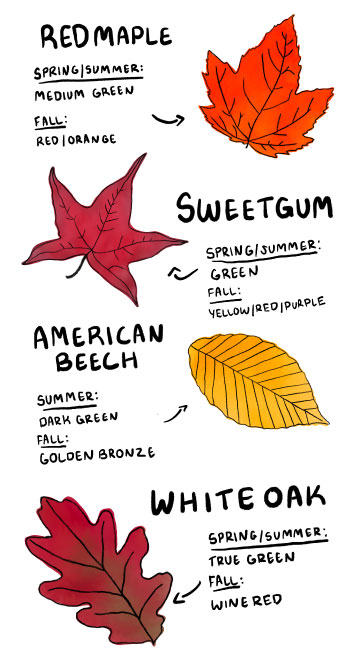 RED MAPLE
SPRING/SUMMER:
MEDIUM GREEN
FALL:
RED/ORANGE
SWEETGUM
SPRING/SUMMER:
GREEN
FALL:
YELLOW/RED/PURPLE
AMERICAN
BEECH
SUMMER:
DARK GREEN
FALL:
GOLDEN BRONZE
WHITE OAK
SPRING/SUMMER:
TRUE GREEN
FALL:
WINE RED